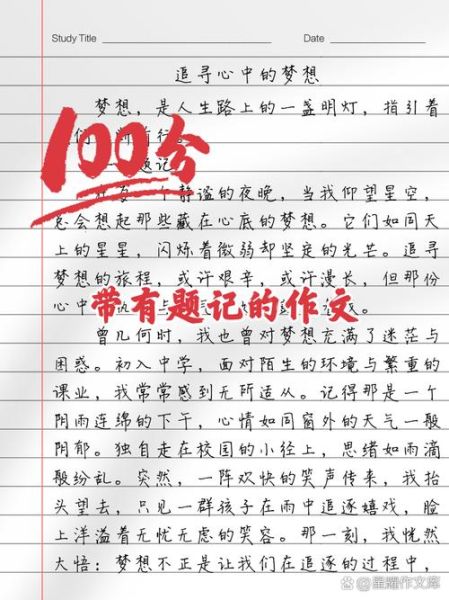 Study Title
Date
追寻心中的梦想
梦想，是人生路上的一盏明灯，指引着
100分
题记
静谧的夜晚，当我仰望星空，
总会想起那些藏在心底的梦想。它们如同天
上的星星，闪烁着微弱却坚定的光芒。追寻
梦想的旅程，或许艰辛，或许漫长，但那份
心中
带有题记的作文
曾几何时，我也曾对梦想充满了迷茫与
困惑。初入中学，面对陌生的环境与繁重的
课业，我常常感到无所适从。记得那是一个
阴雨连绵的下午，心情如同窗外的天气一般
阴郁。独自走在校园的小径上，思绪如雨滴
般纷乱。突然，一阵欢快的笑声传来，我抬
头望去，只见一群孩子在雨中追逐嬉戏，脸
上洋溢着无忧无虑的笑容。那一刻，我恍然
大悟：梦想不正是让我们在追逐的过程中，
星耀作文库